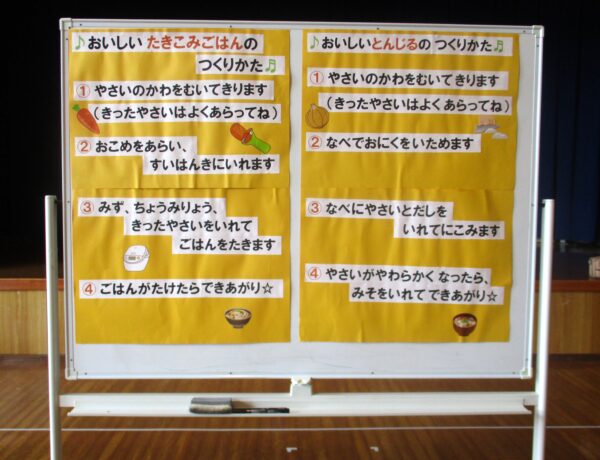 ♪おいしい たきこみごはんの
つくりかた♬
① やさいのかわをむいてきります
（きったやさいはよくあらってね）
② おこめをあらい、
すいはんきにいれます
③ みず、ちょうみりょう、
きったやさいをいれて
ごはんをたきます
④ ごはんがたけたらできあがり☆
♪おいしいとんじるの つくりかた♬
① やさいのかわをむいてきります
（きったやさいはよくあらってね）
② なべでおにくをいためます
③ なべにやさいとだしを
いれてにこみます
④ やさいがやわらかく なったら、
みそをいれて できあがり☆